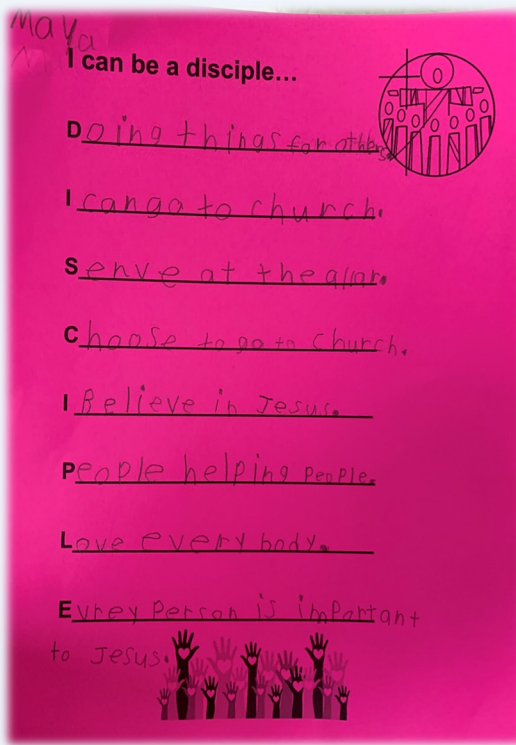 Maya
M.
I can be a disciple...
Doing things for others.
I can go to church.
Serve at the altar.
Choose to go to church.
I Believe in Jesus.
People helping People.
Love every body.
Evrey Person is important
to Jesus.